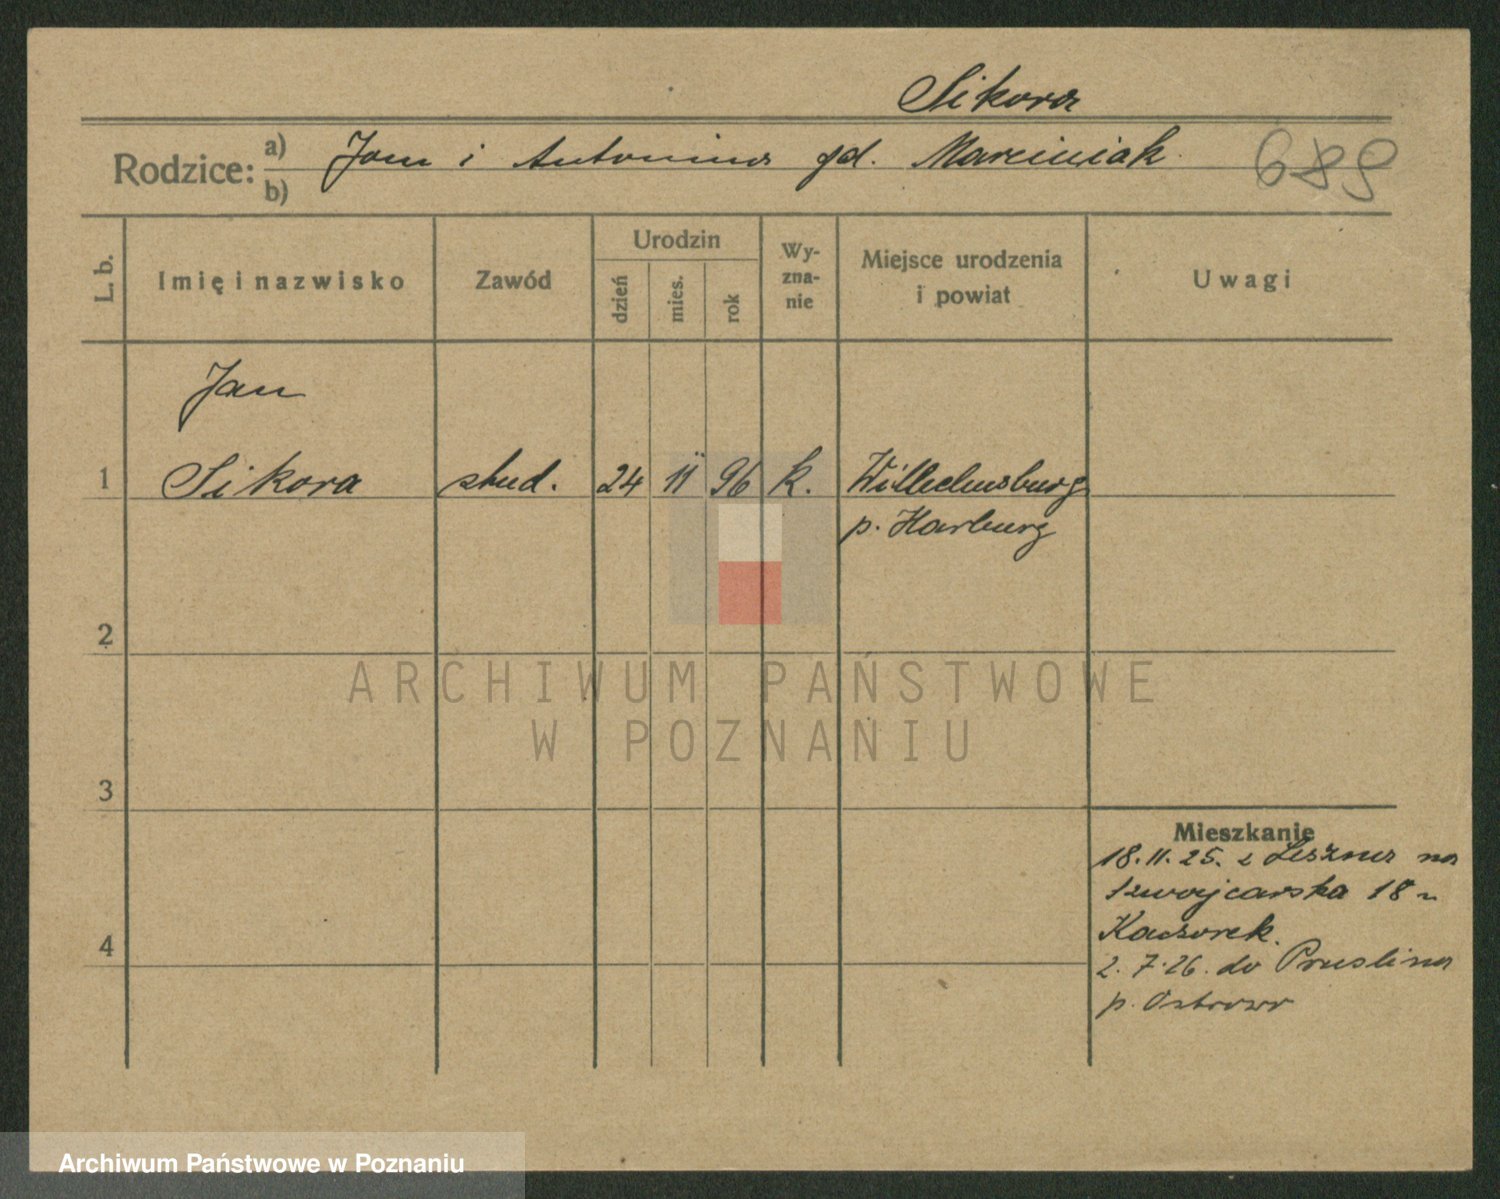 Sikora
Rodzice: a) Jan i Antonina gd. Marciniak 689
b)
L. b. Imię i nazwisko Zawód Urodzin dzień mies. rok Wy-zna-nie Miejsce urodzenia i powiat Uwagi
Jan
1 Sikora stud. 24 11 96 k. Wilhelmsburg
p. Harburg
2
ARCHIWUM PAŃSTWOWE
W POZNANIU
3
Mieszkanie
18.11.25. z Leszna na
Szwajcarska 18 u
4 Kaczorek.
2.7.26. do Pruslina
p. Ostrowo
Archiwum Państwowe w Poznaniu